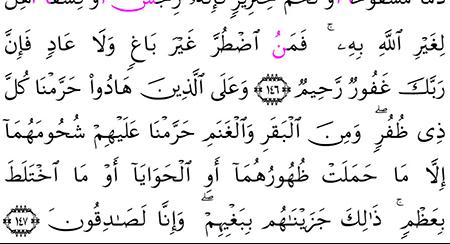 دَمًا مَّسْفُوحًا أَوْ لَحْمَ خِنزِيرٍ فَإِنَّهُۥ رِجْسٌ أَوْ فِسْقًا أُهِلَّ
لِغَيْرِ ٱللَّهِ بِهِۦۚ فَمَنُ ٱضْطُرَّ غَيْرَ بَاغٍ وَلَا عَادٍ فَإِنَّ
رَبَّكَ غَفُورٌ رَّحِيمٌ ﴿١٤٦﴾ وَعَلَى ٱلَّذِينَ هَادُوا۟ حَرَّمْنَا كُلَّ
ذِى ظُفُرٍۖ وَمِنَ ٱلْبَقَرِ وَٱلْغَنَمِ حَرَّمْنَا عَلَيْهِمْ شُحُومَهُمَآ
إِلَّا مَا حَمَلَتْ ظُهُورُهُمَآ أَوِ ٱلْحَوَايَآ أَوْ مَا ٱخْتَلَطَ
بِعَظْمٍۚ ذَٰلِكَ جَزَيْنَٰهُم بِبَغْيِهِمْۖ وَإِنَّا لَصَٰدِقُونَ ﴿١٤٧﴾